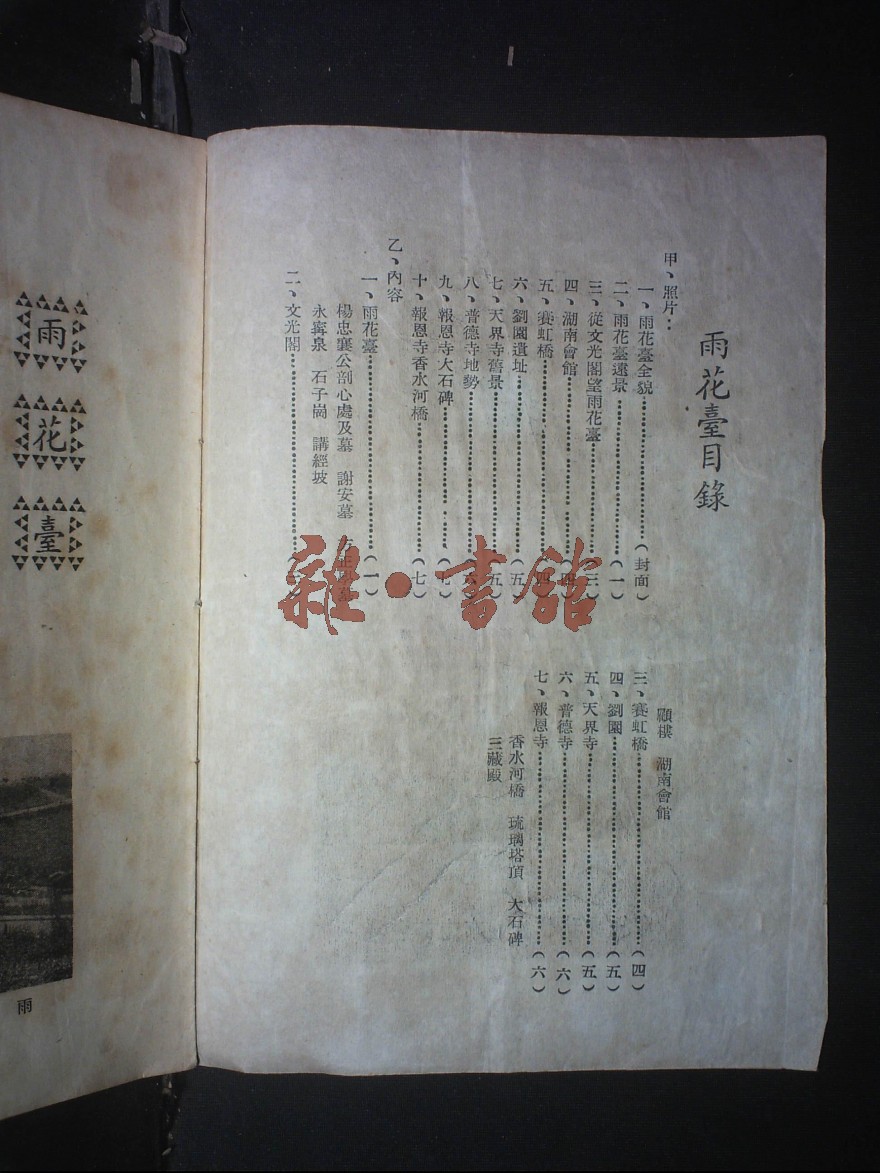 雨花臺目錄
甲、照片：
一、雨花臺全貌……（封面）
二、雨花臺遠景……（一）
三、從文光閣望雨花臺……（三）
四、湖南會館……（四）
五、賽虹橋……（四）
六、劉園遺址……（五）
七、天界寺舊景……（五）
八、普德寺地勢……（六）
九、報恩寺大石碑……（七）
十、報恩寺香水河橋……（七）
乙、內容
一、雨花臺……（一）
楊忠襄公剖心處及墓　謝安墓
永寗泉　石子崗　講經坡
二、文光閣……
顧樓　湖南會館
三、賽虹橋……（四）
四、劉園……（五）
五、天界寺……（五）
六、普德寺……（六）
七、報恩寺……（六）
香水河橋　琉璃塔頂　大石碑
三藏殿
雨
花
臺
雨
雜·書館